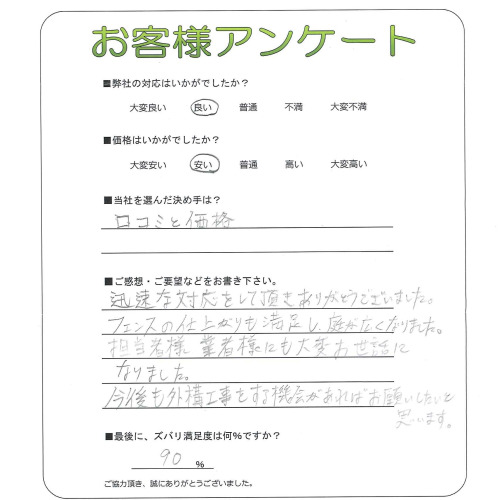 お客様アンケート
■弊社の対応はいかがでしたか？
大変良い 良い 普通 不満 大変不満
■価格はいかがでしたか？
大変安い 安い 普通 高い 大変高い
■当社を選んだ決め手は？
口コミと価格
■ご感想・ご要望などをお書き下さい。
迅速な対応をして頂きありがとうございました。
フェンスの仕上がりも満足し、庭が広くなりました。
担当者様、業者様にも大変お世話に
なりました。
今後も外構工事をする機会があればお願いしたいと
思います。
■最後に、ズバリ満足度は何%ですか？
90 %
ご協力頂き、誠にありがとうございました。